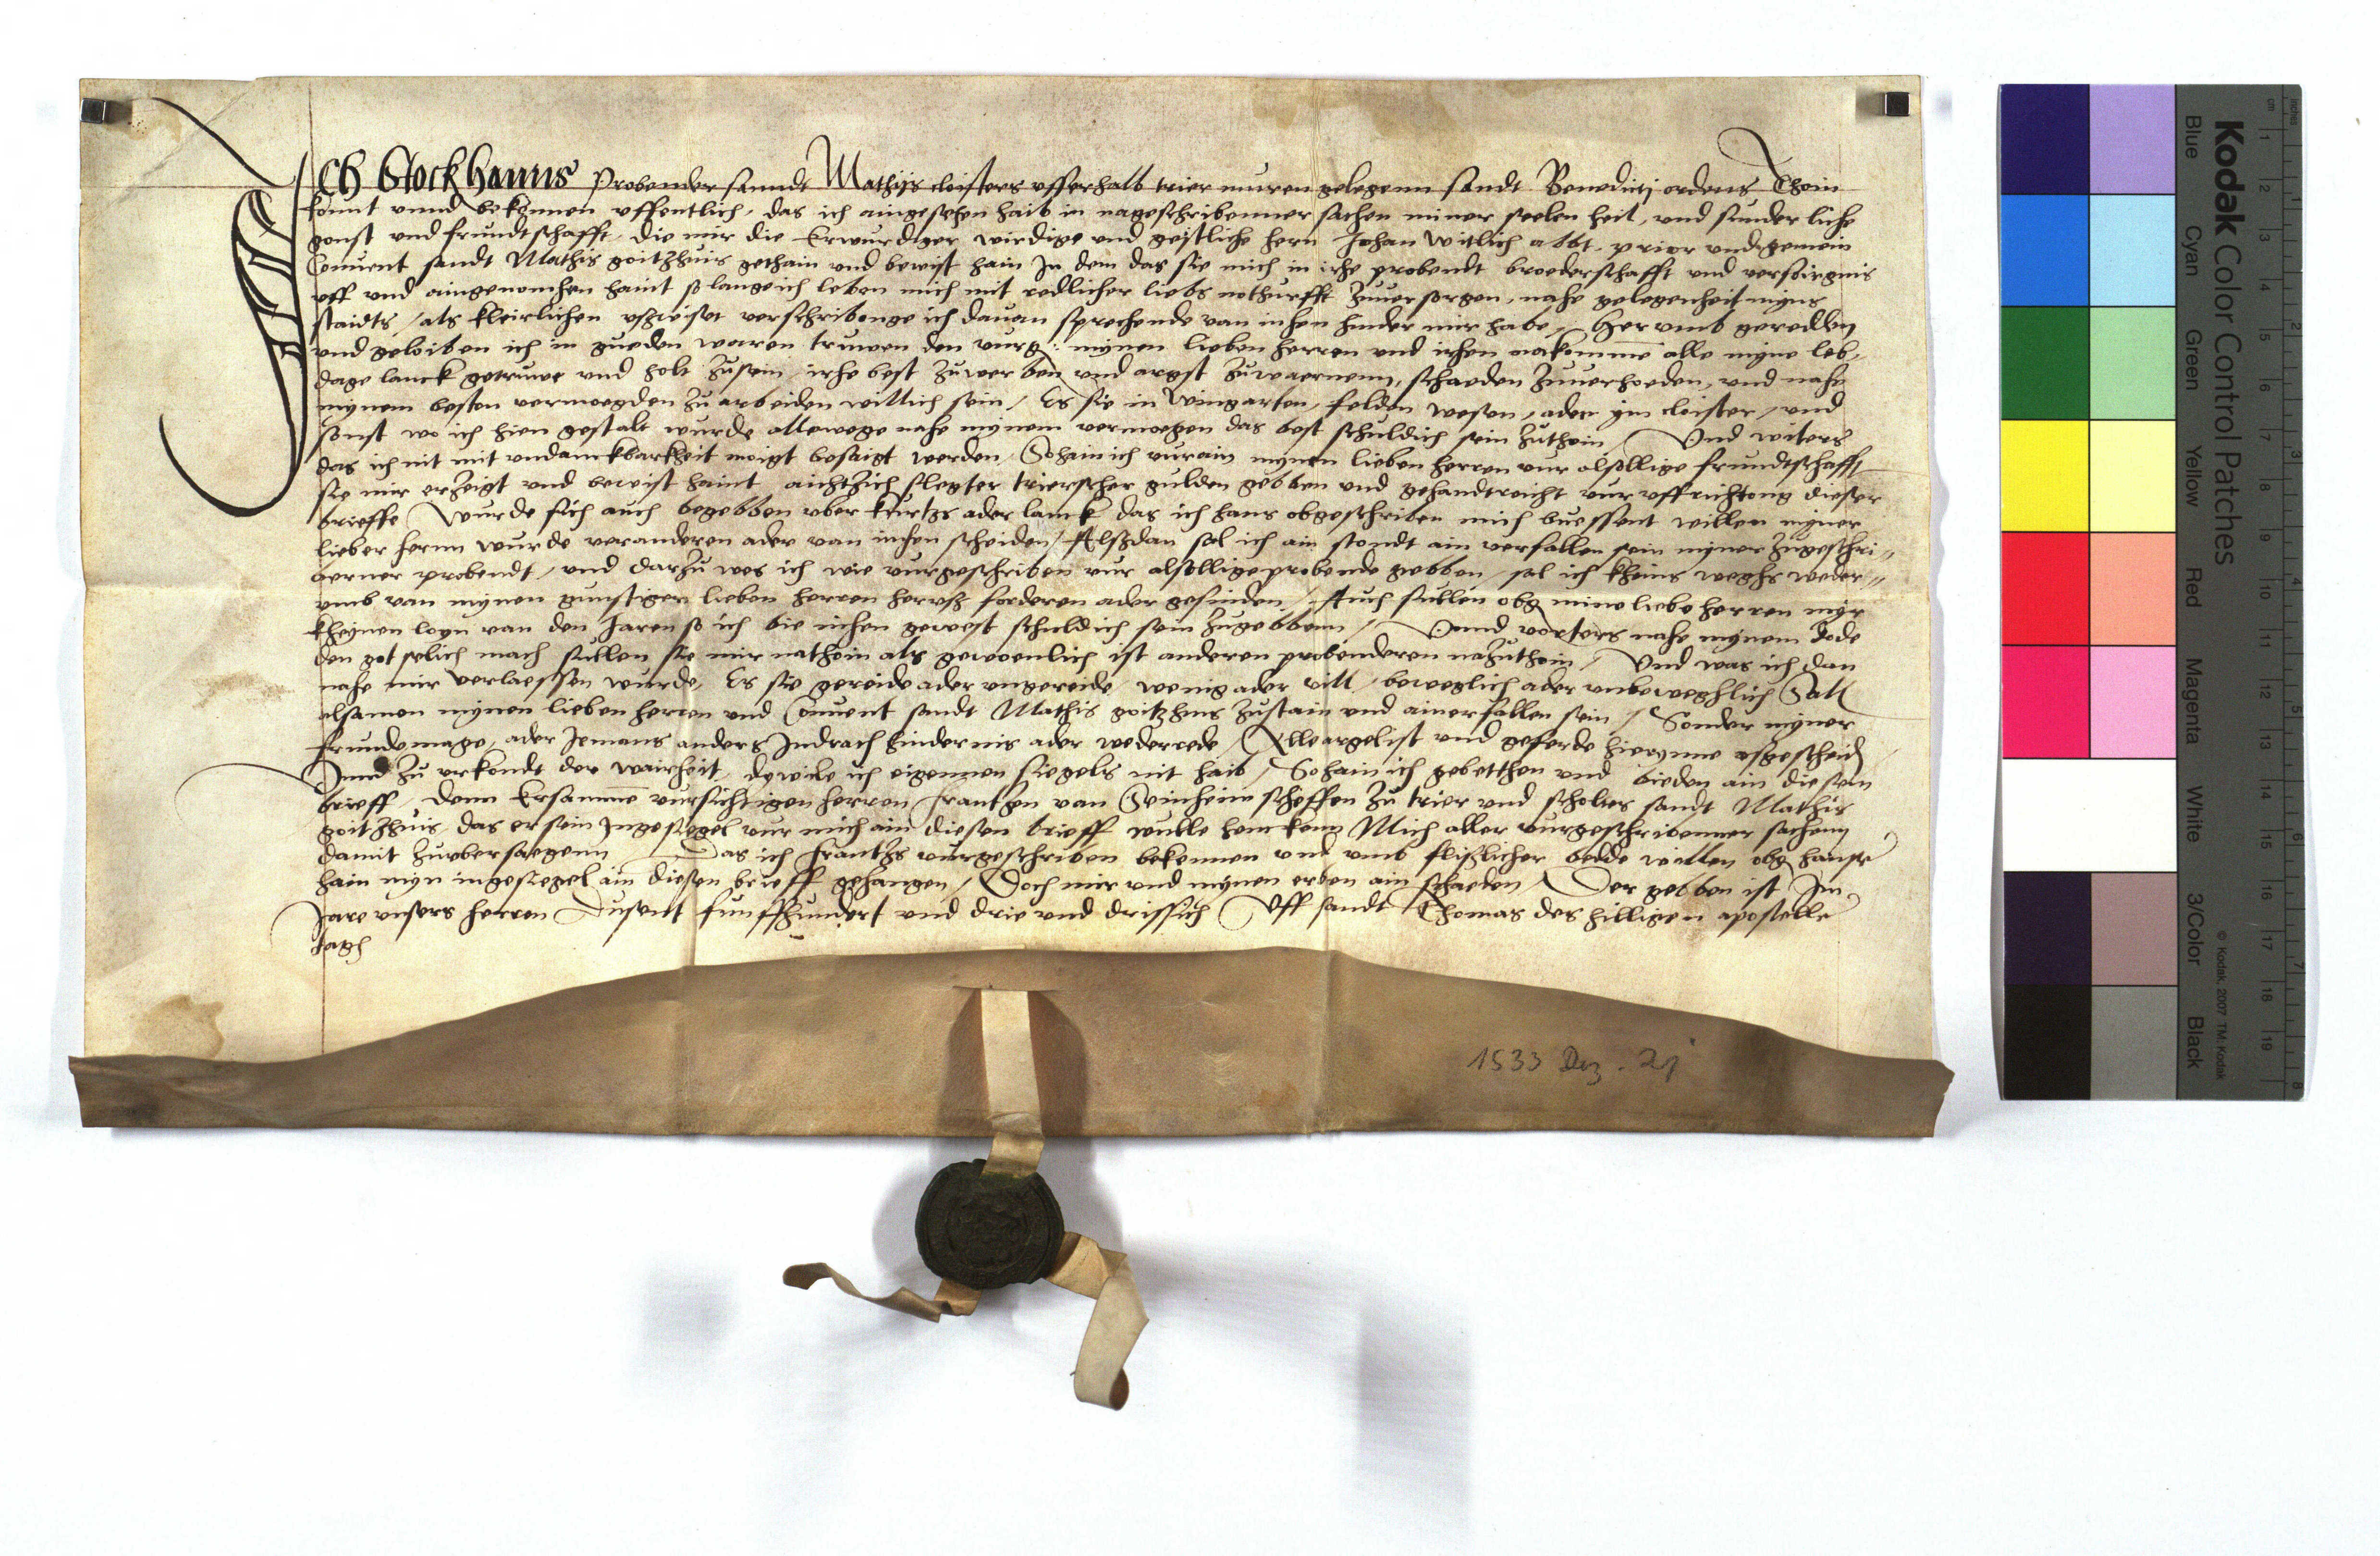 Ich Stockhanns Probender sanndt Mathijs cloisters vsserhalb trier muren gelegenn sandt Benedictj ordens Thoin
konnt vnnd bekennen vffentlich, das ich aingesehen haib in nageschribenner sachen miner seelen heil, vnd sunderliche
gonst vnd frundtschafft, die mir die Erwurdiger wirdige vnd geistliche hern Johan Witlich abbt, prior vnd gemein
Conuent sandt Mathis goitzhuis gethain vnd bewist hain In dem das sie mich in irhe probendt broederschafft vnd versoirgnis
vff vnd aingenomhen haint so lange ich leben mich mit redlicher liebs nothurfft zuuersorgen, nahe gelegenheit myns
staidts / als kleirlichen vßwisst verschribonge ich dauan sprechende van inhen hinder mir habe, Herumb geredden
vnd geloiben ich in gueden waren truwen den vurg: mynen lieben herren vnd irhen nakommē alle myne leb-
dage lanck getruwe vnd holt zusein irhe best zuwerben vnd argst zuwaernenn, schaeden zuuerhoeden, vnd nahe
mynem besten vermoegden zu arbeiden willich sein / Es sie in wingarten, felden wesen, ader jm cloister / vnd
sonst wo ich hien gestalt wurde allewege nahe mynem vermoegen das best schuldich sein zuthoin / Vnd witers
das ich nit mit vndanckbarkheit moigt besaigt werden, So hain ich vurain mynen lieben herren vur alsollige frundtschafft
sie mir erzeigt vnd bewist haint aichtzich slegter trierscher gulden gebben vnd gehandtreicht vur vffrichtong dieser
brieffe / Wurde sich auch begebben vber kurtzs ader lanck das ich hans obgeschriben mich buessent willen myner
lieber hernn wurde veranderen ader van inhen scheiden / Alßdan sal ich ain stondt ain verfallen sein myner zugeschri-
benner probendt / vnd darzu wes ich wie vurgeschriben vur alsollige probende gebben, sal ich kheins weghs weder-
vmb van mynen gunstigen lieben herren herusß forderen ader gesinden / Auch sullen obg mine liebe herren myr
kheynen loyn van den Jaren so ich bie inhen gewest schuldich sein zugebbenn / Vnnd vorters nahe mynem dode
den got selich mach sullen sie mir nathoin als gewoenlich ist anderen probenderen nazuthoin / Vnd was ich dan
nahe mir verlaessen wurde, Es sie gereide ader vngereide wenig ader vill, beweglich ader vnbeweghlich Sall
alsamen mynen lieben herren vnd Conuent sandt Mathis goitzhuis zustain vnd ainerfallen sein / Sonder myner
frunde mage, ader Jemans anders Indrach hindernis ader wederrede / Alle argelist vnd geferde hierjnne vßgescheiden
Vnnd zu vrkondt der wairheit, dywile ich eigennen siegels nit haib / So hain ich gebetthen vnd bieden ain diesen
brieff, denn Ersammē vursichtigen herren Frantzen van Seinheim scheffen zu trier vnd scholtes sandt Mathis
goitzhuis das er sein Ingesiegel vur mich ain diesen brieff wulle hencken Mich aller vurgeschribenner sachenn
damit zuubersaegenn Das ich Frantzs vurgeschriben bekennen vnd vmb flißlicher bedde willen obg hanse
hain myn ingesiegel ain diesen brieff gehangen / Doch mir vnd mynen erben ain schaeden / Der geben ist Jm
Jare vnsers herren Dusent funffhundert vnd drie vnd drissich Vff sandt Thomas des hilligen apostelle
tagh
1533 Dez. 21
Kodak Color Control Patches
Blue Cyan Green Yellow Red Magenta White 3/Color Black
© Kodak, 2007 TM: Kodak
cm 1 2 3 4 5 6 7 8 9 10 11 12 13 14 15 16 17 18 19
inches 1 2 3 4 5 6 7 8